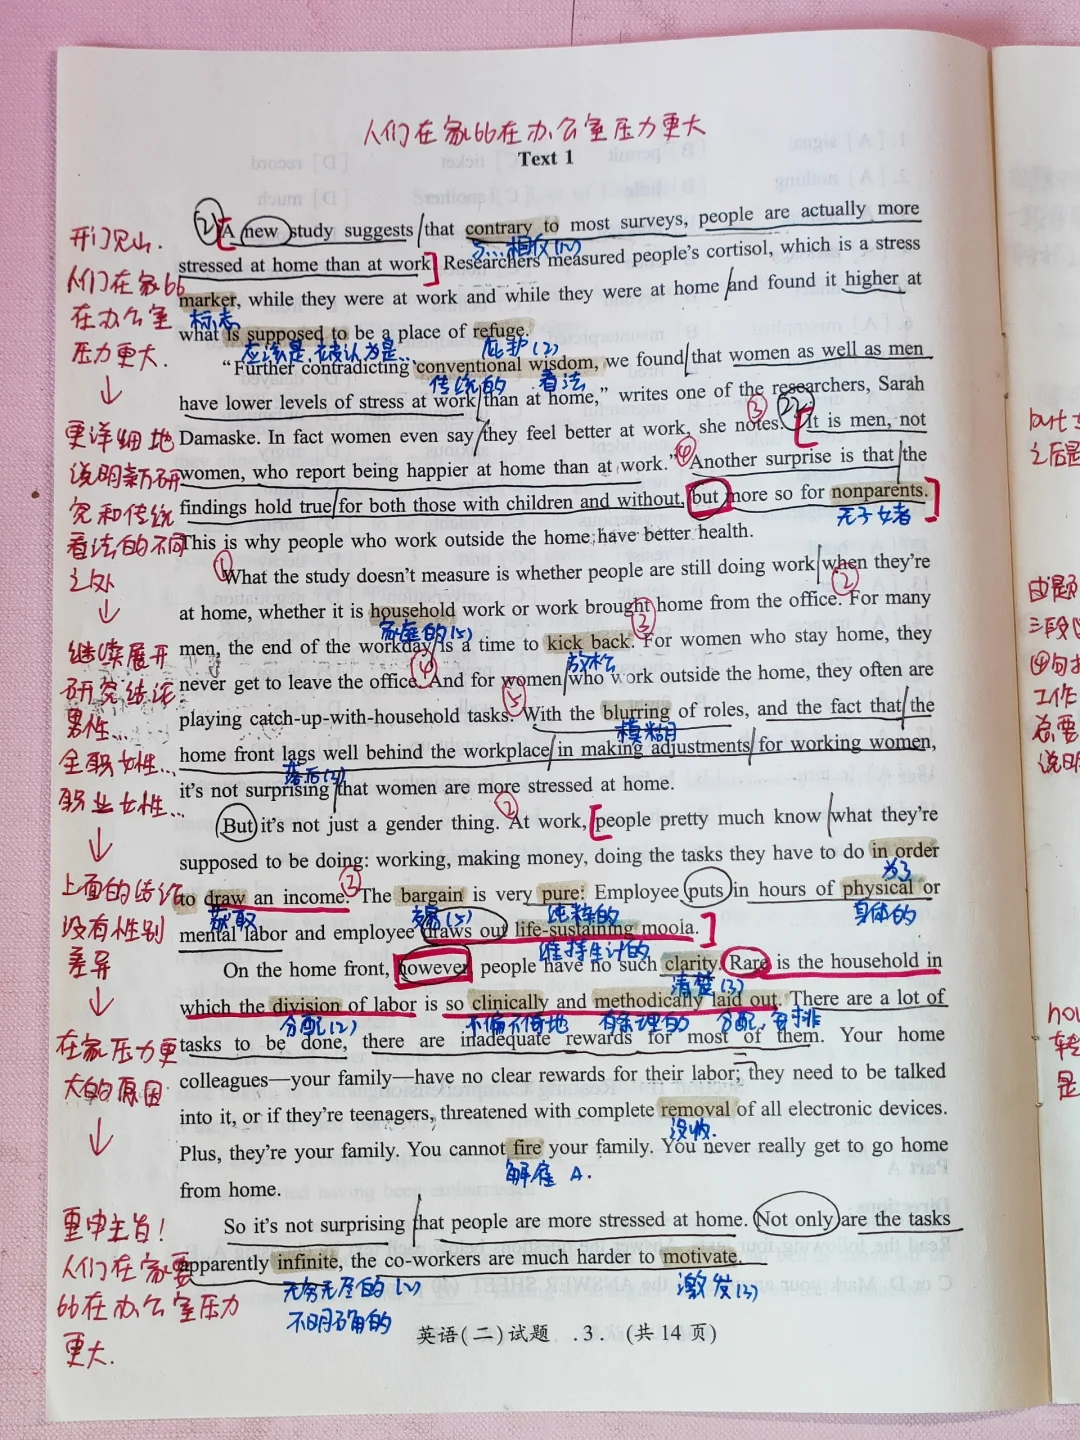 人们在家比在办公室压力更大
Text 1
② A new study suggests that contrary to most surveys, people are actually more
与…相反(n)
stressed at home than at work. Researchers measured people's cortisol, which is a stress
marker, while they were at work and while they were at home and found it higher at
标志
what is supposed to be a place of refuge.
应该是,被认为是… 庇护(2)
"Further contradicting conventional wisdom, we found that women as well as men
传统的 看法
have lower levels of stress at work than at home," writes one of the researchers, Sarah
Damaske. In fact women even say they feel better at work, she notes. "It is men, not
women, who report being happier at home than at work." Another surprise is that the
findings hold true for both those with children and without, but more so for nonparents.
无子女者
This is why people who work outside the home have better health.
What the study doesn't measure is whether people are still doing work when they're
at home, whether it is household work or work brought home from the office. For many
家庭的(5)
men, the end of the workday is a time to kick back. For women who stay home, they
放松
never get to leave the office. And for women who work outside the home, they often are
playing catch-up-with-household tasks. With the blurring of roles, and the fact that the
模糊
home front lags well behind the workplace in making adjustments for working women,
落后(4)
it's not surprising that women are more stressed at home.
But it's not just a gender thing. At work, people pretty much know what they're
supposed to be doing: working, making money, doing the tasks they have to do in order
为了
to draw an income. The bargain is very pure: Employee puts in hours of physical or
获取 交易(5) 纯粹的 身体的
mental labor and employee draws out life-sustaining moola.
维持生计的
On the home front, however, people have no such clarity. Rare is the household in
清楚(3)
which the division of labor is so clinically and methodically laid out. There are a lot of
分配(2) 不偏不倚地 有条理的 分配,安排
tasks to be done, there are inadequate rewards for most of them. Your home
colleagues—your family—have no clear rewards for their labor; they need to be talked
into it, or if they're teenagers, threatened with complete removal of all electronic devices.
没收
Plus, they're your family. You cannot fire your family. You never really get to go home
解雇 A.
from home.
So it's not surprising that people are more stressed at home. Not only are the tasks
apparently infinite, the co-workers are much harder to motivate.
无穷无尽的(2) 激发(3)
不明确的
英语(二)试题 .3. (共14页)
开门见山.
人们在家比
在办公室
压力更大.
↓
更详细地
说明新研
究和传统
看法的不同
之处
↓
继续展开
研究结论
男性…
全职女性…
职业女性…
↓
上面的结论
没有性别
差异
↓
在家压力更
大的原因
↓
重申主旨!
人们在家要
比在办公室压力
更大.
but
之后是
三段
④句
工作
总要
说明
转
是